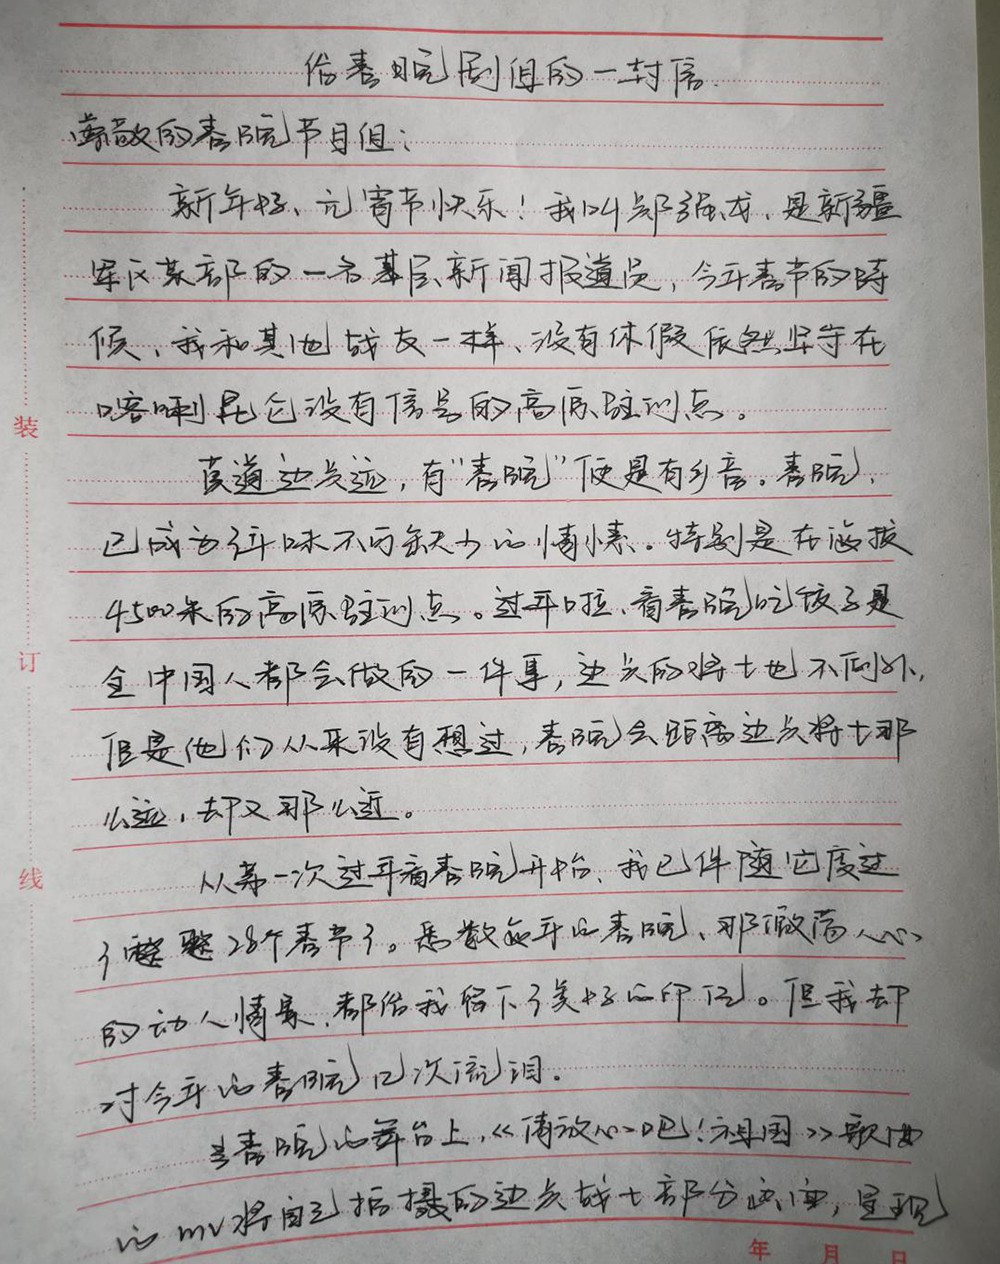 给春晚剧组的一封信
尊敬的春晚节目组：
新年好、元宵节快乐！我叫郭强龙、是新疆
军区某部的一名基层新闻报道员，今年春节的时
候、我和其他战友一样、没有休假依然坚守在
喀喇昆仑没有信号的高原驻训点。
莫道边关远，有“春晚”便是有乡音。春晚、
已成为年味不可缺少的情愫。特别是在海拔
4500米的高原驻训点。过年啦、看春晚吃饺子是
全中国人都会做的一件事，边关的将士也不例外，
但是他们从来没有想过，春晚会距离边关将士那
么远，却又那么近。
从第一次过年看春晚开始、我已伴随它度过
了整整28个春节了。悉数每年的春晚、那激荡人心
的动人情景、都给我留下了美好的印记。但我却
对今年的春晚几次流泪。
当春晚的舞台上，《请放心吧！祖国》歌曲
的mv将自己拍摄的边关战士部分画面，呈现
装
订
线
年 月 日